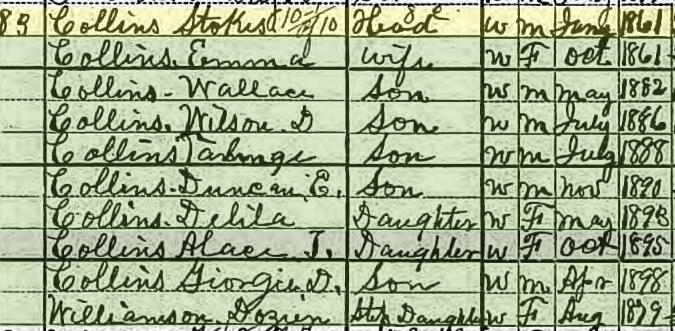 89 Collins Stokes Head W M Jany 1861
Collins. Emma Wife W F Oct 1861
Collins - Wallace Son W M May 1882
Collins. Wilson. D Son W M July 1886
Collins Son W M July 1888
Collins. Duncan, E. Son W M Nov 1890
Collins. Delila Daughter W F May 1893
Collins Alace J. Daughter W F Oct 1895
Collins Giorgie. D. Son W M Apr 1898
Williamson. Dozien Step Daughter W F Aug 1879